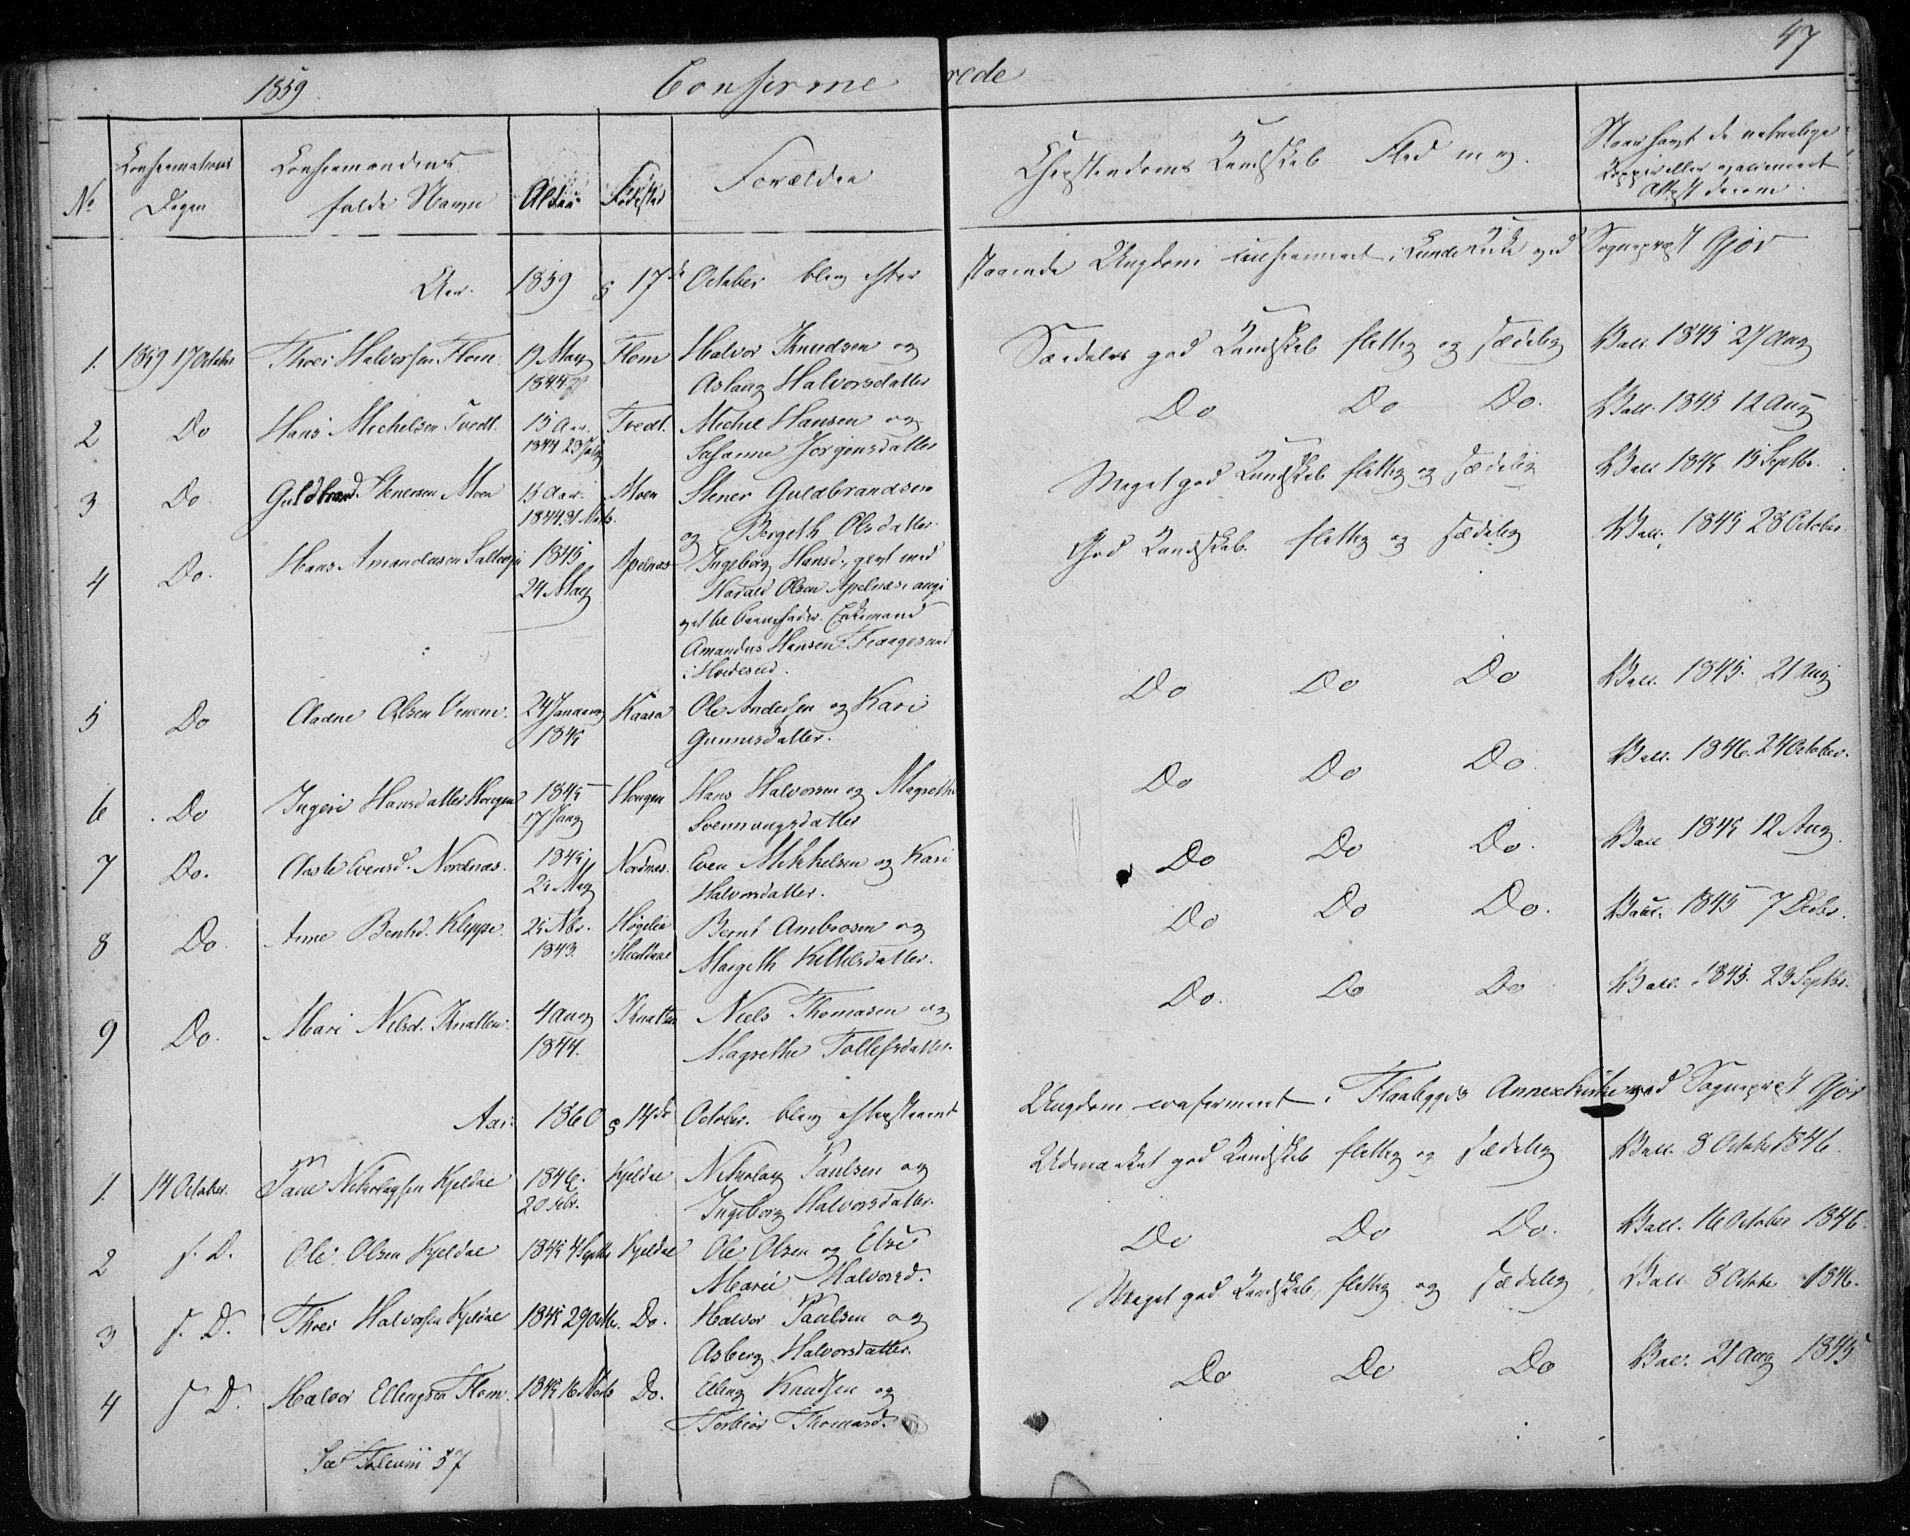 47
1859 Confirmerede
No
Confirmations Dagen
Confirmandens fulde Navn
Alder
Fødested
Forældre
Christendoms Kundskab Flid m. v.
Attest derom
Aar 1859 d 17de October blev efter staaende Ungdom confirmeret i Lunde Kirke ved Sognepræst Gjør
1. 1859 17 October Thor Halvorsen Flom 19 May 1844 Flom Halvor Knudsen og Aslaug Halvorsdatter Særdeles god Kundskab flittig og sædelig Vacc. 1845 27 Aug
2 Do Hans Michelsen Tvedt. 15 Aar. 1844 23 July Tvedt. Michel Hansen og Susanne Jørgensdatter Do Do Do. Vacc. 1845 12 Aug
3 Do Guldbrand Stenersen Moen 15 Aar. 1844 31 Marts. Moen Stener Guldbrandsen og Bergeth Olsdatter Meget god Kundskab flittig og sædelig Vacc 1845 15 Septbr.
4 Do. Hans Amandusen 1845 24 May Apelnæs Ingeborg Hansd., givt med Harald Olsen Apelnæs, angivet til barnefader Enkemand Amandus Hansen Fraagesund i Hvideseid. God Kundskab flittig og sædelig Vacc. 1845 28 October.
5 Do Aadne Olsen 24 January 1845 Kaasa Ole Andersen og Kari Gunnersdatter. Do Do Do Vacc. 1845. 21 Aug
6 Do Ingeri Hansdatter Haugen 1845 17 Jany Haugen Hans Halvorsen og Magrethe Svennungsdatter Do Do Do Vacc. 1846. 24 October.
7 Do. Aaste Evensd. Nordnæs. 1845 25 May Nordnæs. Even Mikkelsen og Kari Halvorsdatter. Do Do Do. Vacc 1845 12 Aug.
8 Do. Anne Berntsd. Kleppe. 25 Nbr. 1843. Bernt Ambrosen og Margith Kittelsdatter. Do Do Do. Vacc. 1845 7 Decbr.
9 Do. Mari Nilsd. Knatten. 4 Aug 1844. Knatten Niels Thomasen og Magrethe Tollefsdatter. Do. Do Do Vacc. 1845. 23 Septbr.
Aar 1860 d 14de October. blev efterstaaende Ungdom confirmeret i Flaabygds Annexkirke ved Sognepræst Gjør
1. 14 October. Paul Nikolaysen Kjeldal 1846. 20 Febr. Kjeldal Nikolay Paulsen og Ingeborg Halvorsdatter. Udmærket god Kundskab flittig og sædelig Vacc. 8 October 1846.
2 s. D. Ole Olsen Kjeldal 1845 4 Septbr Kjeldal Ole Olsen og Else Marie Halvorsd. Do Do Do. Vacc. 16 October 1846.
3 s. D. Thor Halvorsen Kjeldal 1845 29 Octbr. Do. Halvor Paulsen og Asberg Halvorsdatter. Meget god Kundskab flittig og sædelig Vacc 8 Octbr 1846.
4 s D. Halvor Ellingsen Flom. 1845 16 Marts Do. Elling Knudsen og Torbiør Thomasd. Do Do Do Vacc. 21 Aug 1845